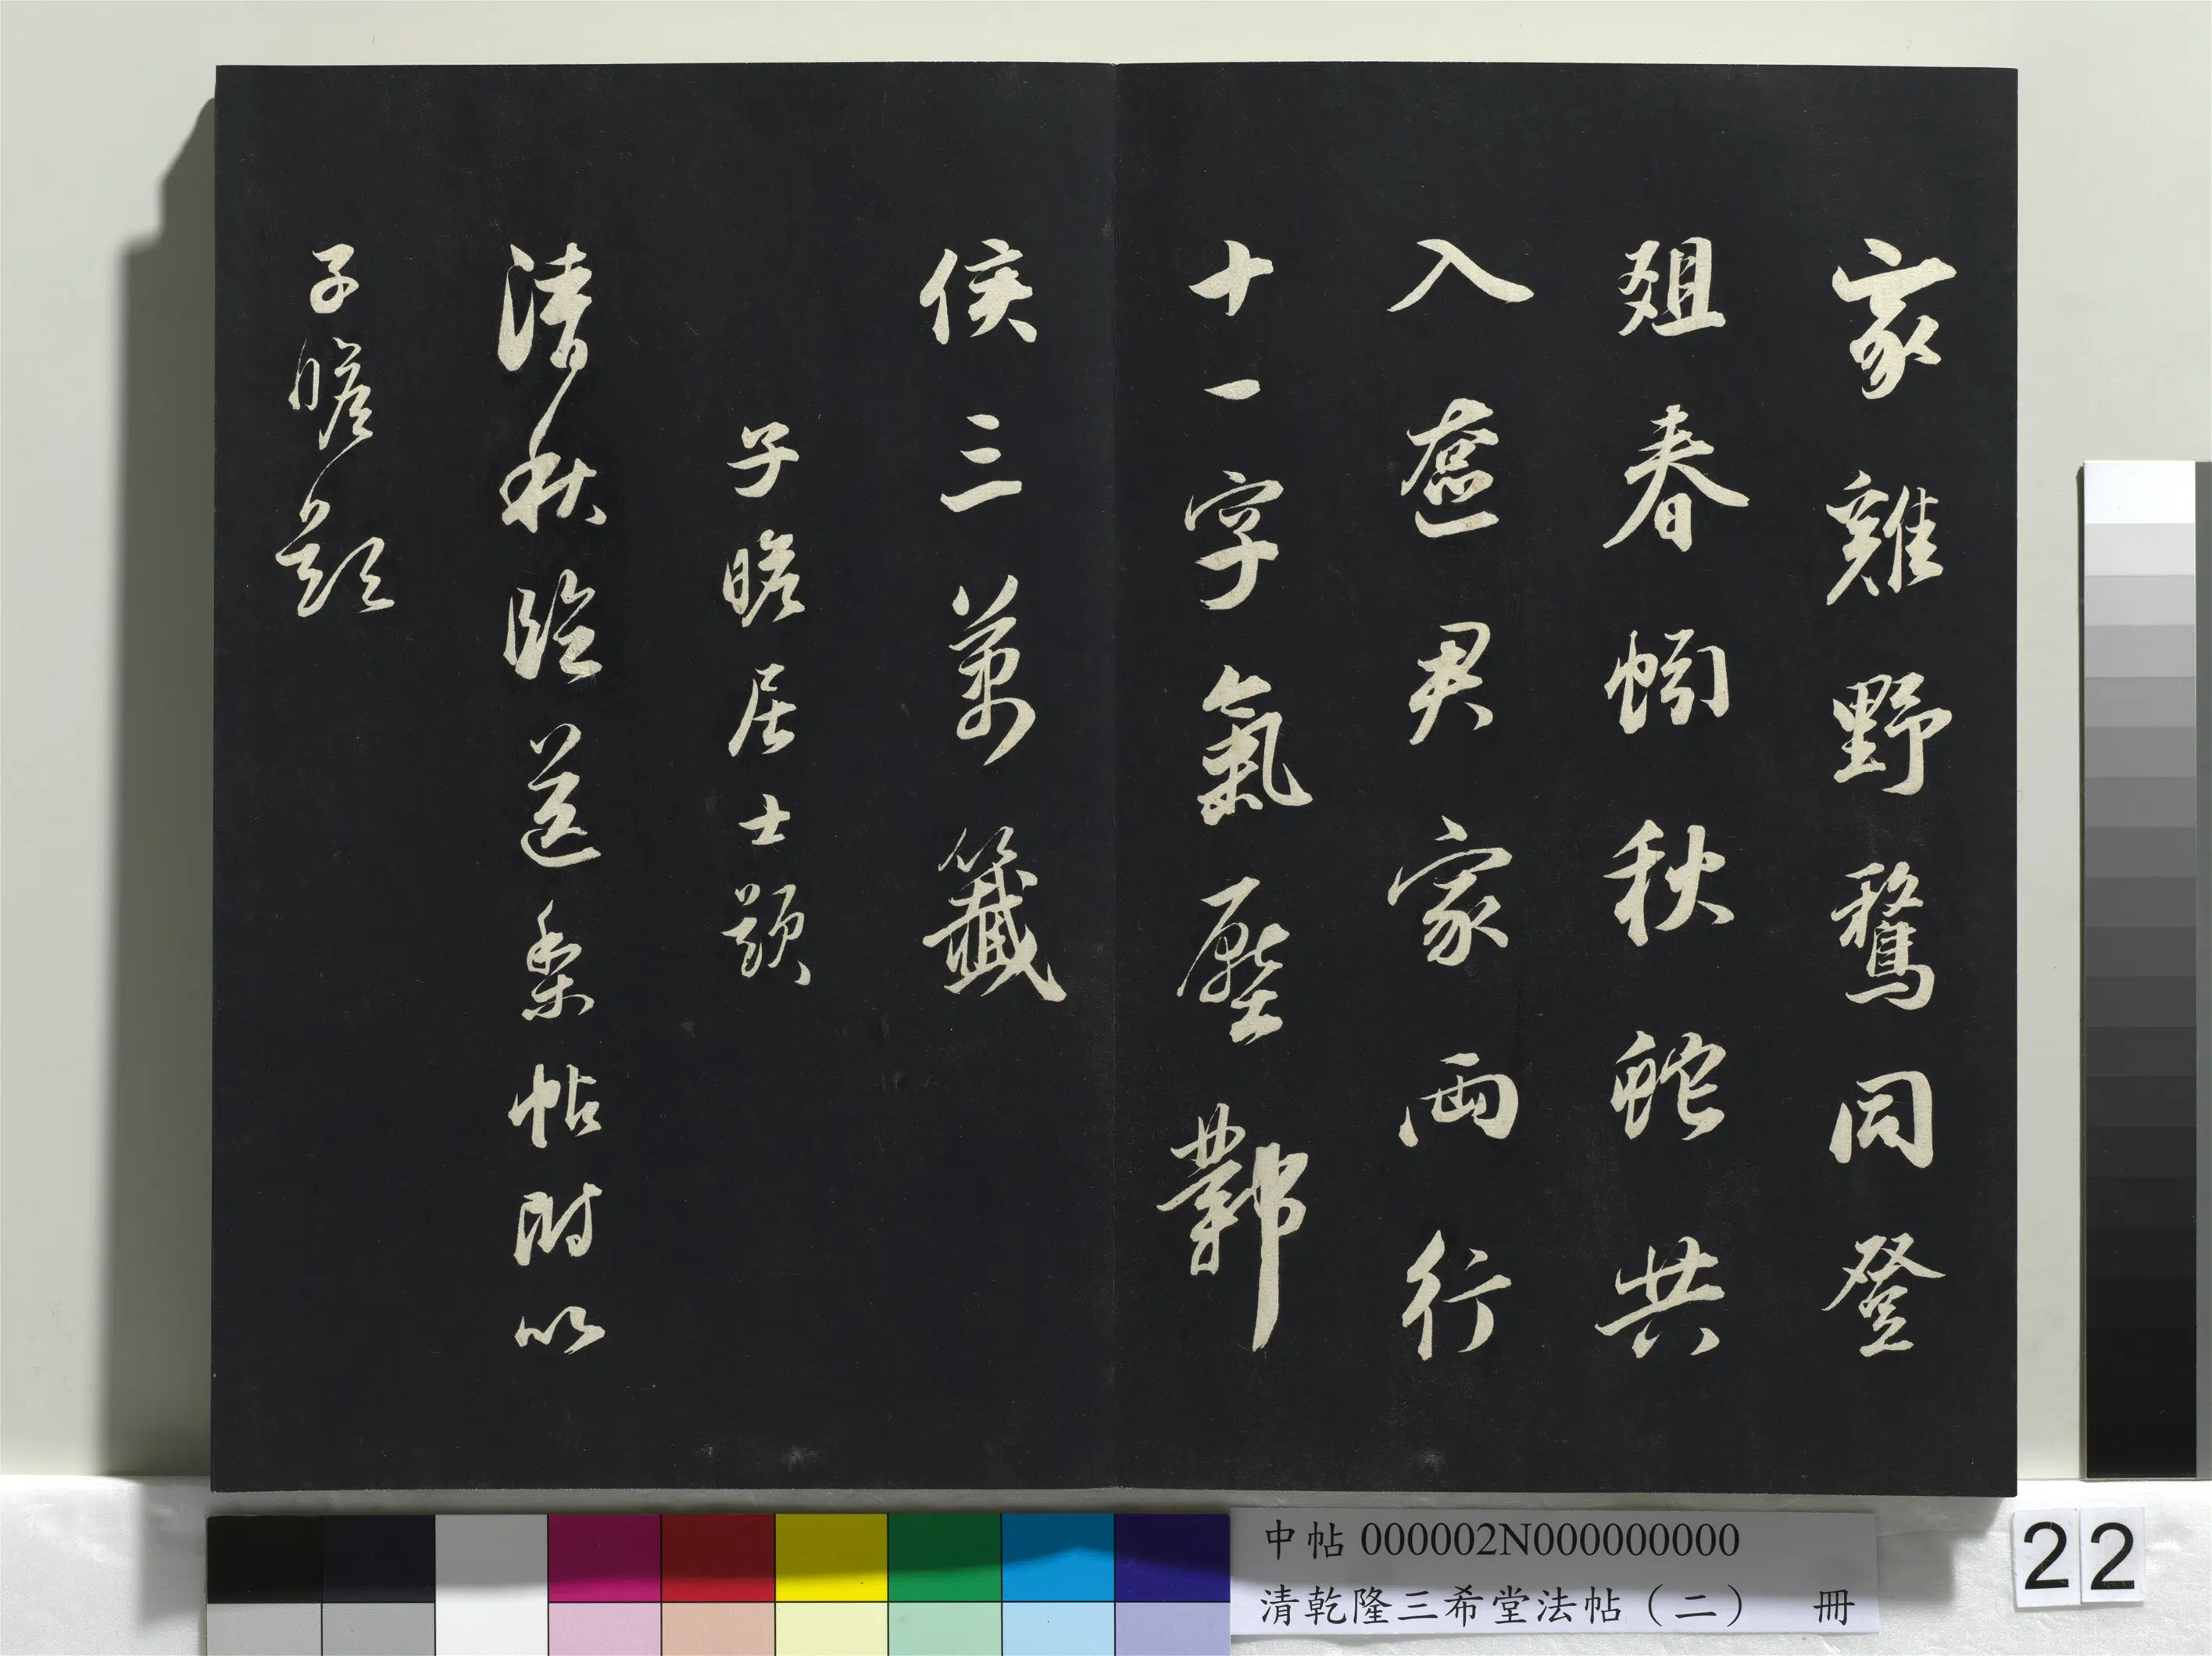 家雞野鶩同登
俎春蚓秋蛇共
入奩君家兩行
十一字氣壓鄴
侯三萬籤
子瞻居士題
清秋臨送梨帖附以
子瞻題
中帖 000002N000000000
清乾隆三希堂法帖（二） 冊
22